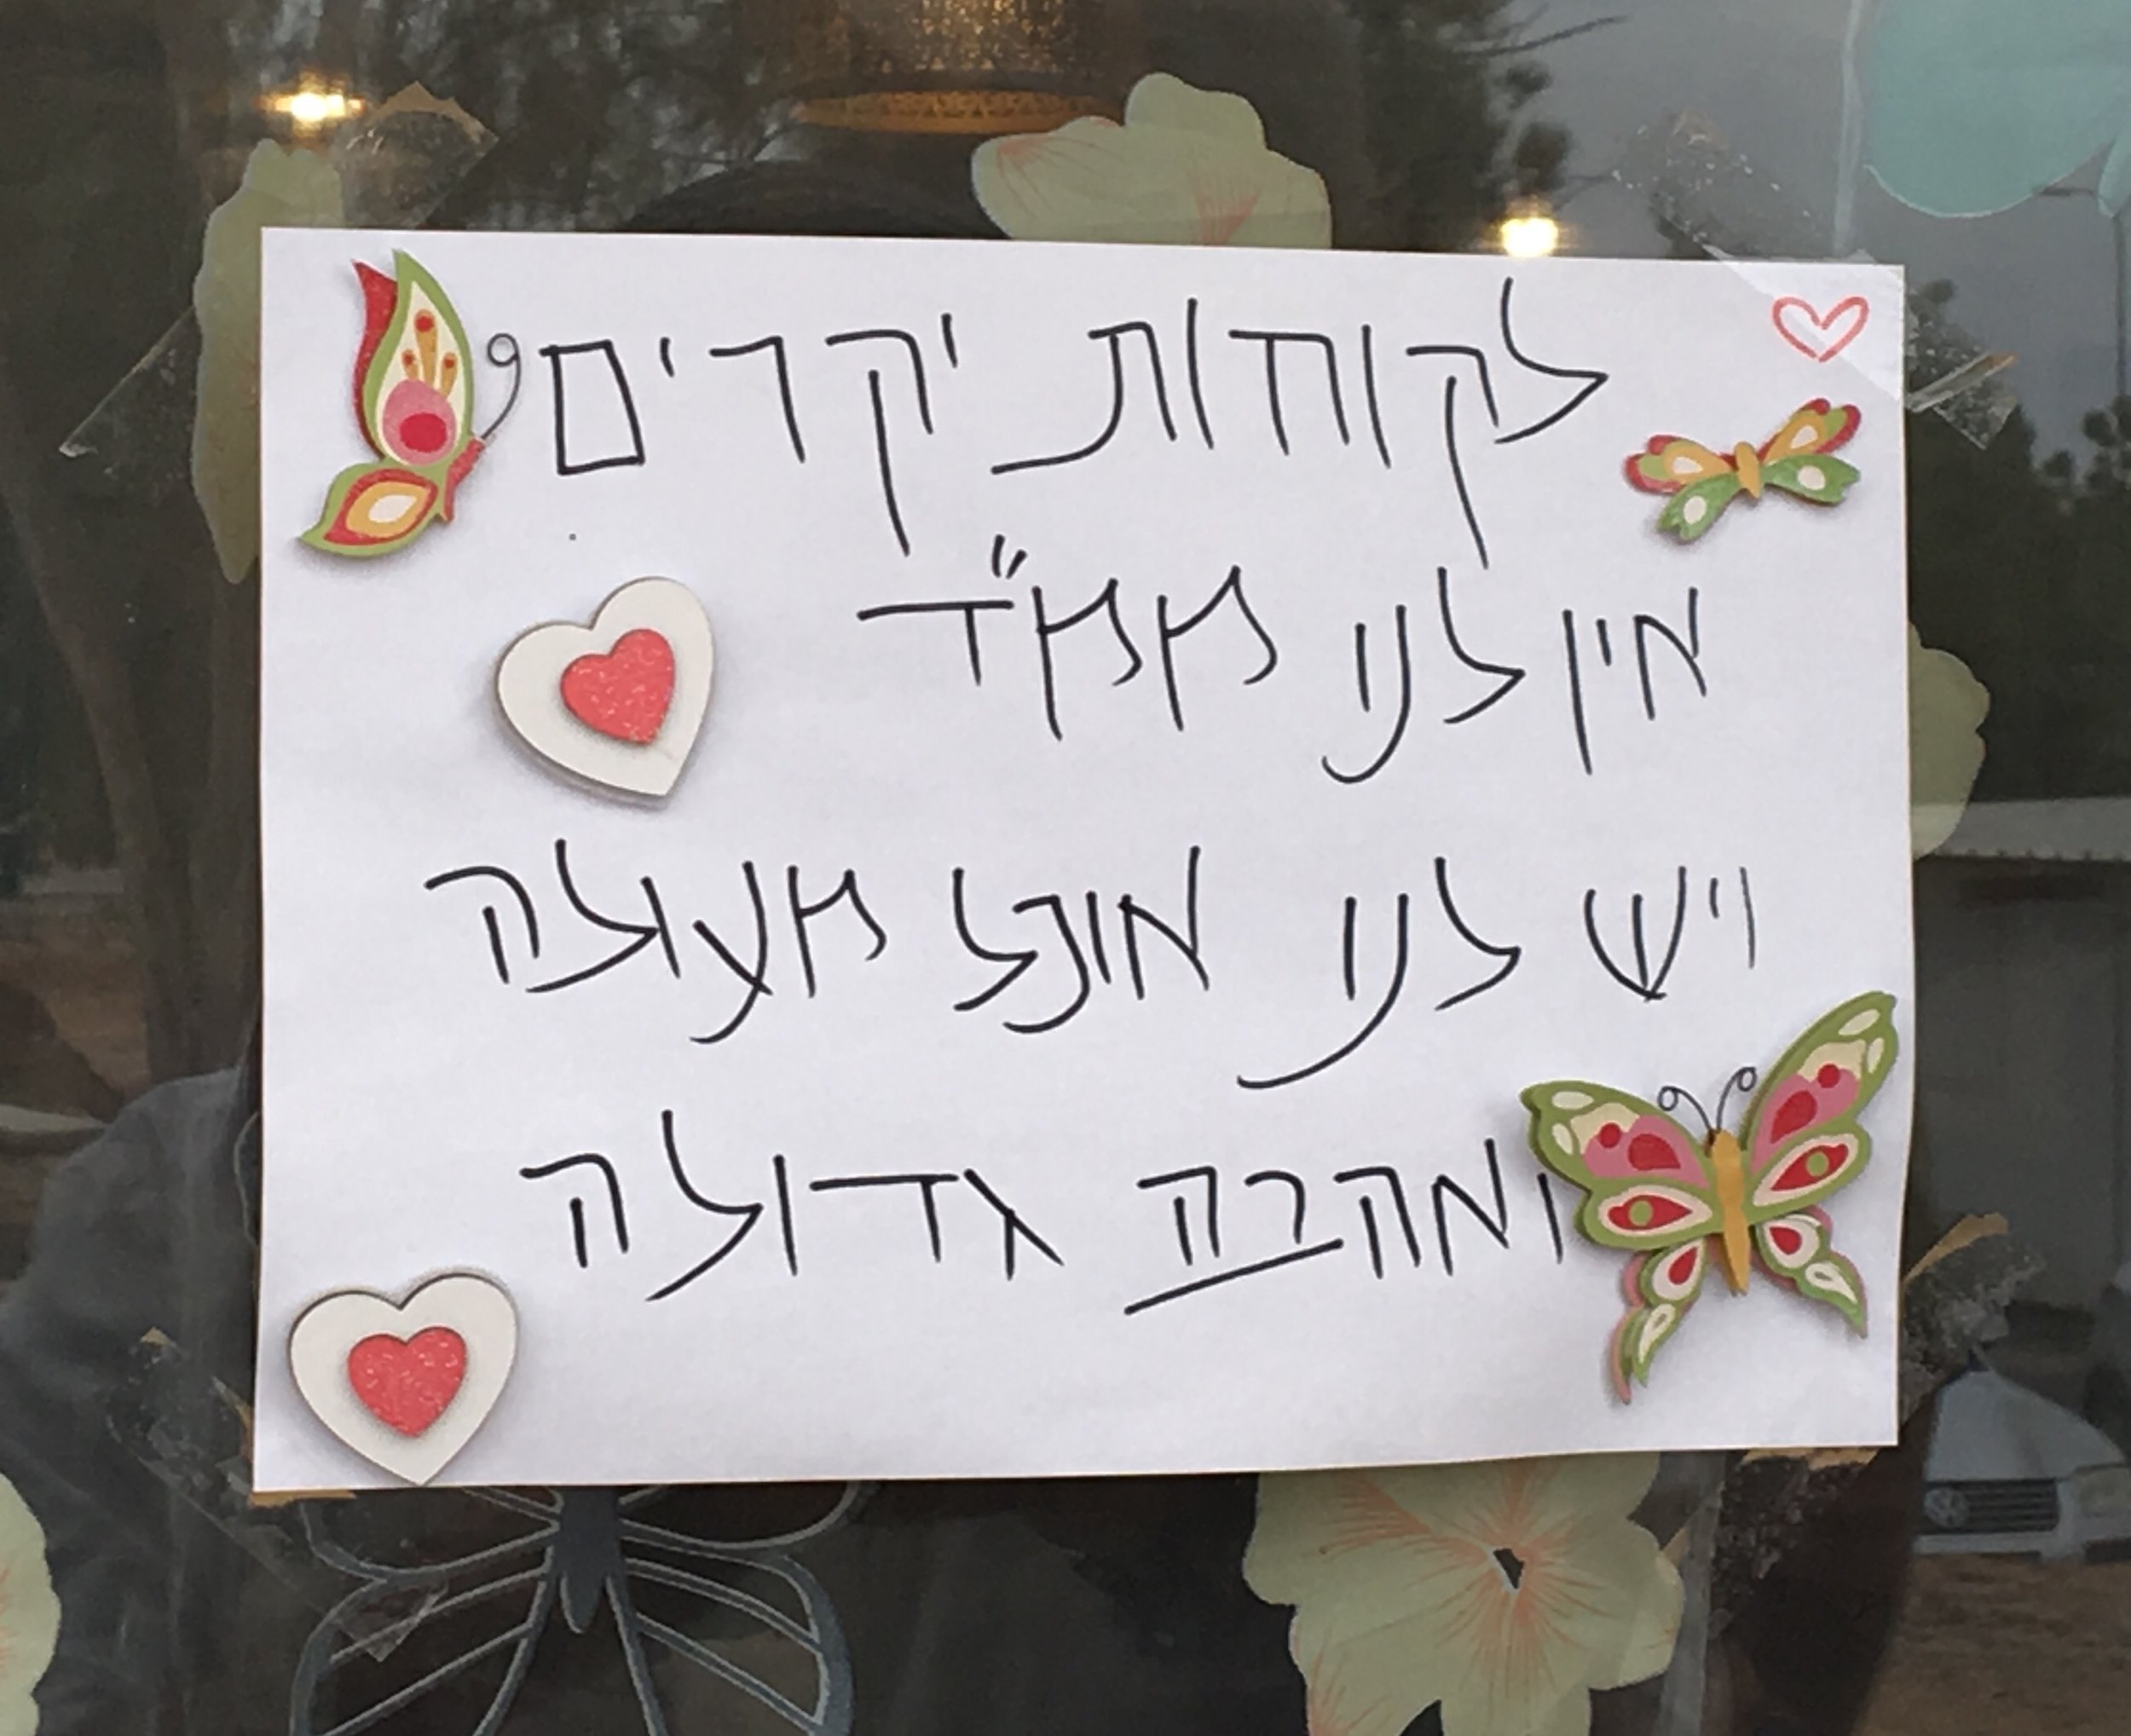 לקוחות יקרים
אין לנו ממ"ד
ויש לנו אוכל מעולה
ואהבה גדולה